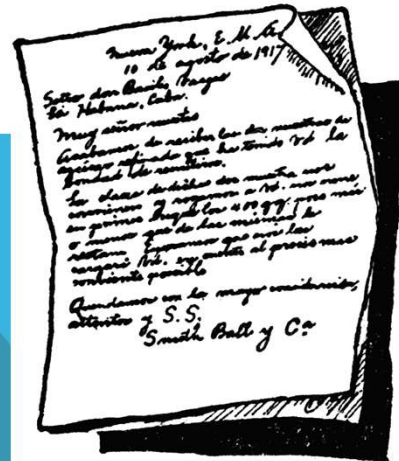 Nueva York, E. U. A.
10 de agosto de 1917
Señor don Basilio Vargas
La Habana, Cuba.
Muy señor nuestro
Acabamos de recibir las dos muestras de
azúcar refinado que ha tenido Vd. la
bondad de remitirnos.
La clase de dichas dos muestra nos
conviene y rogamos a Vd. nos
en primer los 400 qq. poco más
o menos que de las mismas le
restan. Esperamos que nos las
cargará Vd. en cuenta al precio mas
posible
Quedamos con la mayor consideración,
atentos y S. S.
Smith Ball y Cª